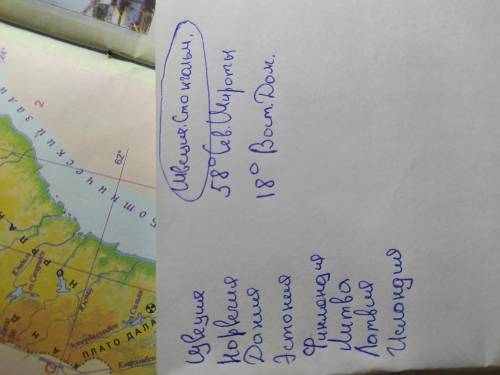 Швеция. Стокгольм.
58° Сев. Широты
18° Вост. Дол.
Швеция
Норвегия
Дания
Эстония
Финляндия
Литва
Латвия
Исландия
Ботнический зали
62°
2
ПЛАТО ДАЛА